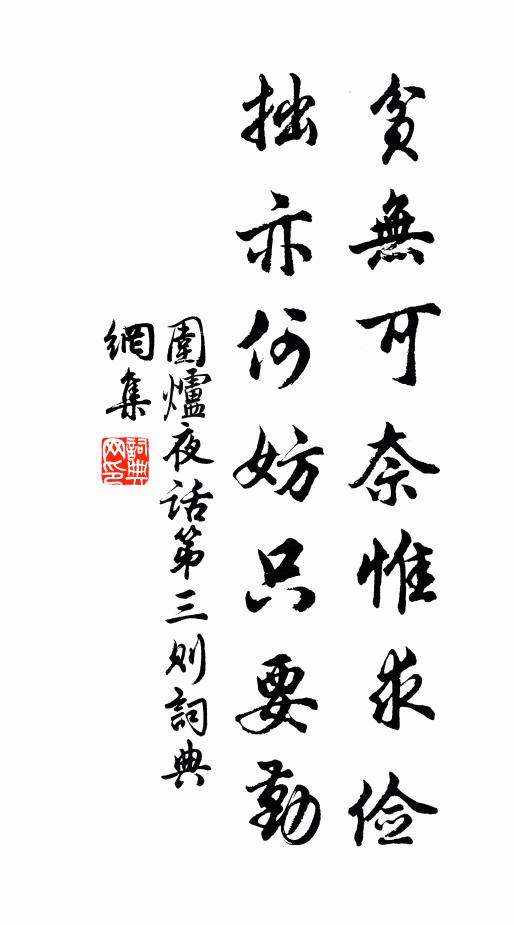 貧無可奈惟求儉
拙亦何妨只要勤
圍爐夜话第三则詞典
網集
詞典
网印